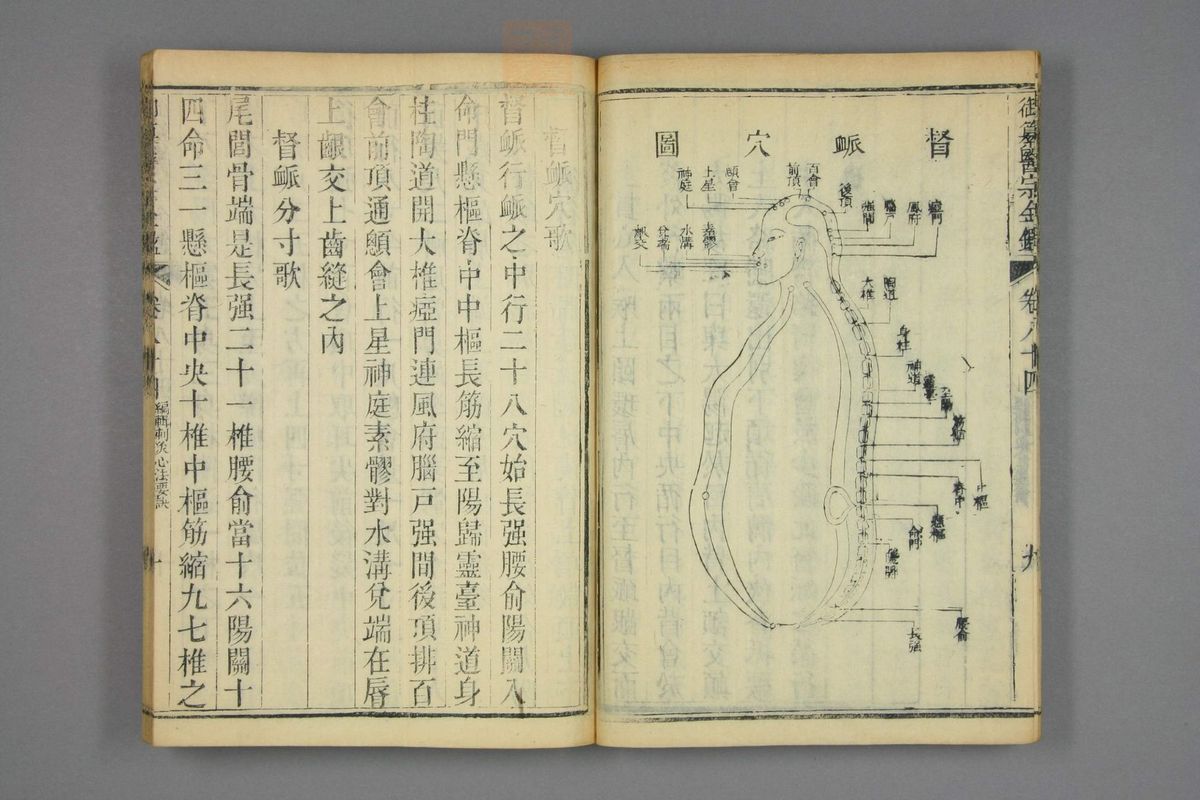 御纂醫宗金鑑
卷八十四
九
督脈穴圖
百會
前頂
顖會
上星
神庭
後頂
強間
腦戶
風府
瘂門
素髎
水溝
兌端
齦交
陶道
大椎
身柱
神道
靈臺
至陽
筋縮
中樞
脊中
懸樞
命門
陽關
腰俞
長強
督脈穴歌
督脈行脈之中行二十八穴始長强腰俞陽關入
命門懸樞脊中中樞長筋縮至陽歸靈臺神道身
柱陶道開大椎瘂門連風府腦戶强間後項排百
會前頂通顖會上星神庭素髎對水溝兌端在唇
上齦交上齒縫之內
督脈分寸歌
尾閭骨端是長强二十一椎腰俞當十六陽關十
四命三一懸樞脊中央十椎中樞筋縮九七椎之
卷八十四
編輯刺灸心法要訣
十